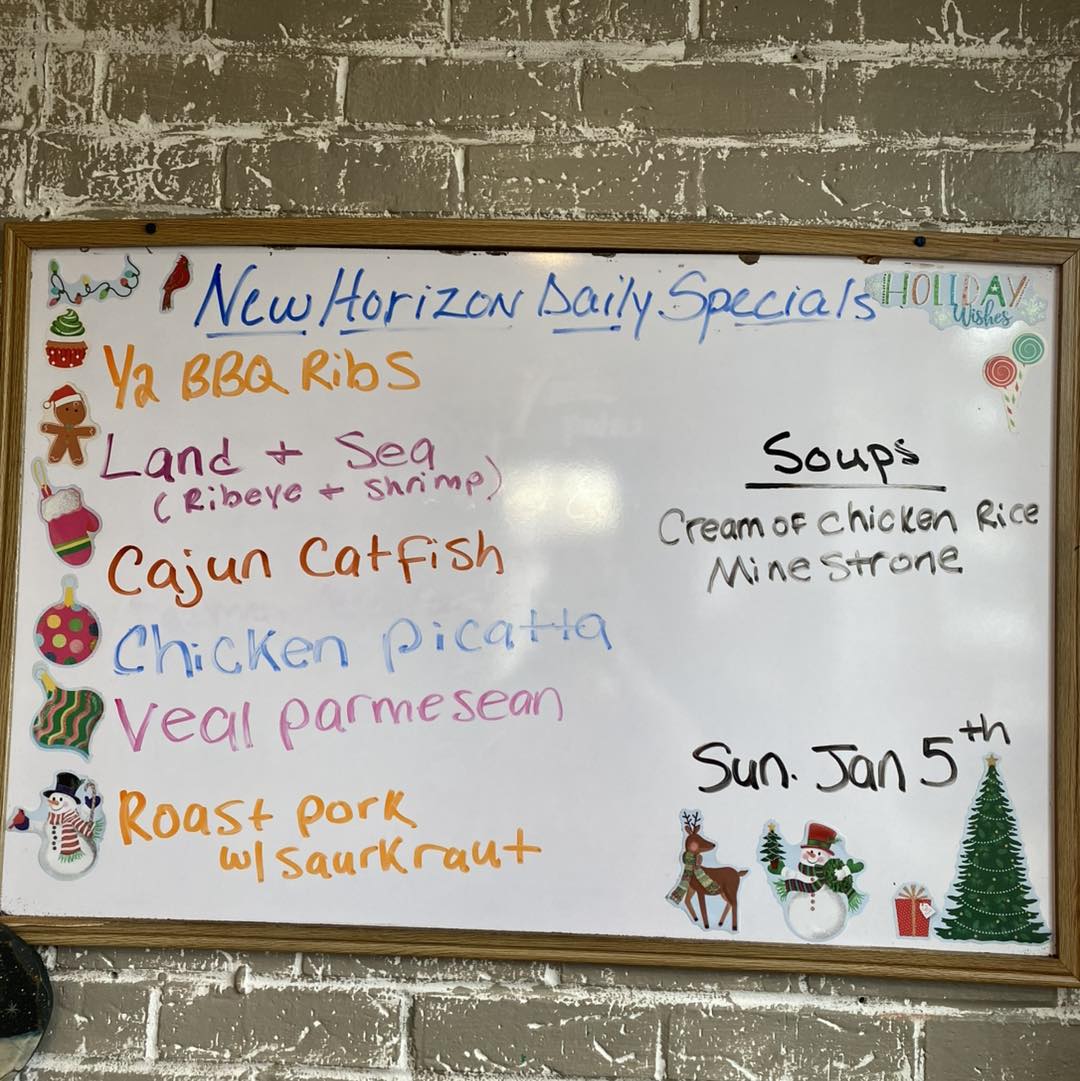 New Horizon Daily Specials
HOLIDAY
Wishes
1/2 BBQ Ribs
Land + Sea
(Ribeye + Shrimp)
Cajun Catfish
Chicken picatta
Veal parmesean
Roast pork
w/ saurkraut
Soups
Cream of chicken Rice
Minestrone
Sun. Jan 5th